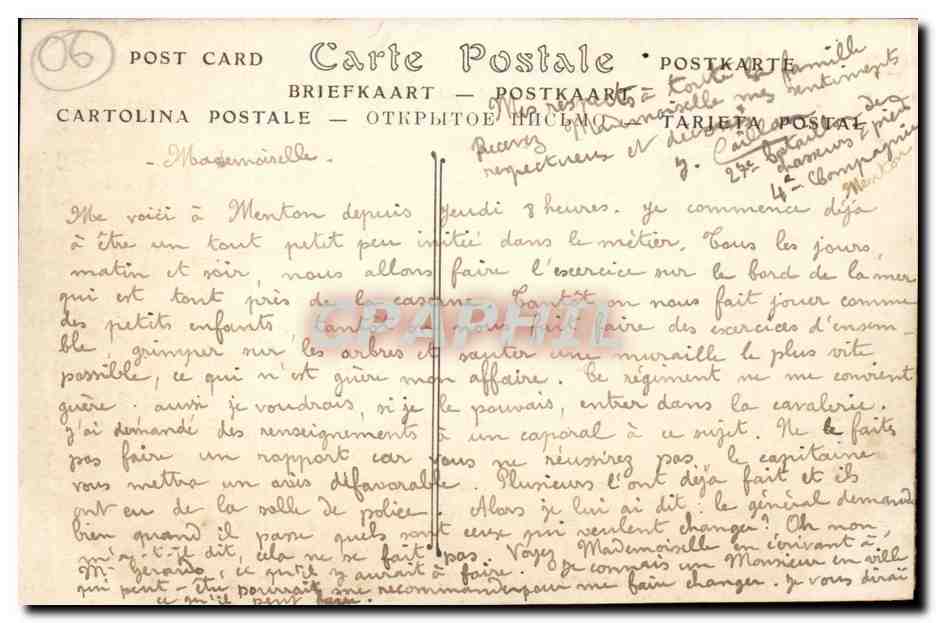 06
POST CARD Carte Postale POSTKARTE
BRIEFKAART — POSTKAART
CARTOLINA POSTALE — ОТКРЫТОЕ ПИСЬМО — TARJETA POSTAL
Mes respects à toute la famille
Recevez Mademoiselle mes sentiments
respectueux et dévoués
27e bataillon de
chasseurs à pied
4e Compagnie
Menton
- Mademoiselle -
Me voici à Menton depuis jeudi 8 heures. Je commence déjà
à être un tout petit peu initié dans le métier. Tous les jours,
matin et soir, nous allons faire l'exercice sur le bord de la mer
qui est tout près de la caserne. Tantôt on nous fait jouer comme
des petits enfants, tantôt on nous fait faire des exercices d'ensem-
ble, grimper sur les arbres et sauter une muraille le plus vite
possible, ce qui n'est guère mon affaire. Ce régiment ne me convient
guère. aussi je voudrais, si je le pouvais, entrer dans la cavalerie.
J'ai demandé des renseignements à un caporal à ce sujet. Ne le faites
pas faire un rapport car vous ne réussirez pas, le capitaine
vous mettra un avis défavorable. Plusieurs l'ont déjà fait et ils
ont eu de la salle de police. Alors je lui ai dit: le général demande
bien quand il passe quels sont ceux qui veulent changer? Oh non,
m'a-t-il dit, cela ne se fait pas. Voyez Mademoiselle en écrivant à
Mr Gerardo, ce qu'il y aurait à faire. Je connais un Monsieur en ville
qui peut-être pourrait me recommander pour me faire changer. Je vous dirai
ce qu'il peut faire.
CPAPHIL